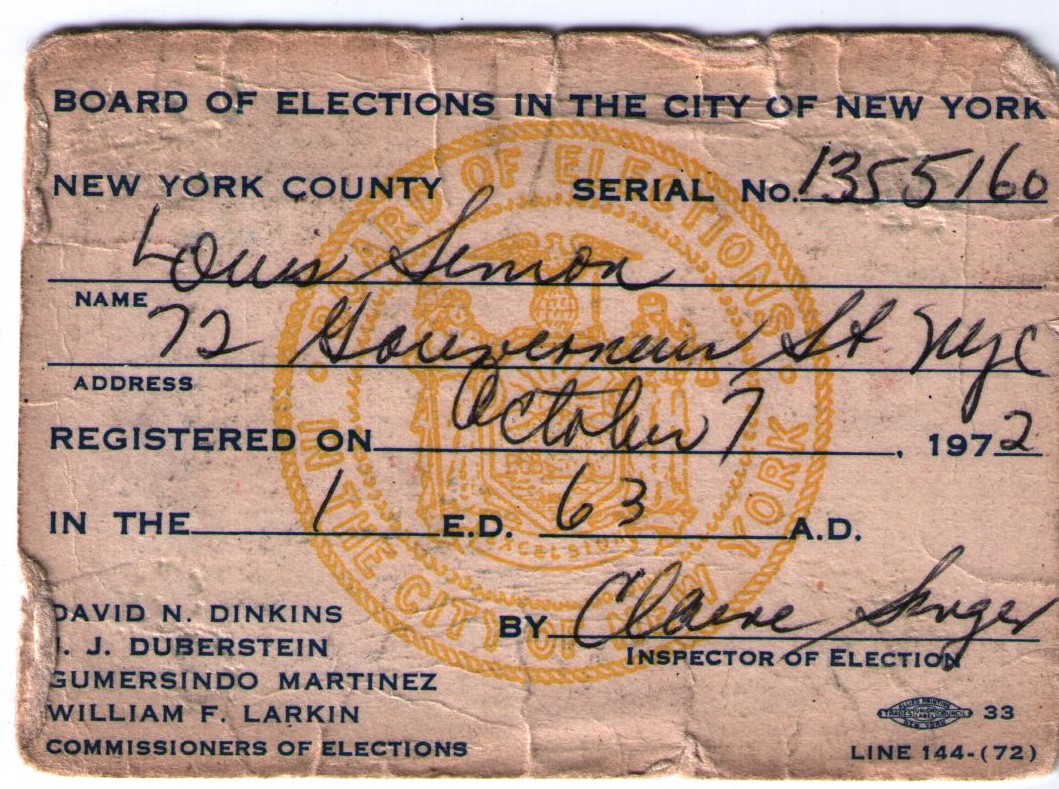 BOARD OF ELECTIONS IN THE CITY OF NEW YORK
NEW YORK COUNTY SERIAL No. 1355160
Louis Simon
NAME
72 Gouverneur St NYC
ADDRESS
REGISTERED ON October 7, 1972
IN THE 1 E.D. 63 A.D.
BOARD OF ELECTIONS IN THE CITY OF NEW YORK
EXCELSIOR
BY Claire Singer
INSPECTOR OF ELECTION
DAVID N. DINKINS
J. DUBERSTEIN
GUMERSINDO MARTINEZ
WILLIAM F. LARKIN
COMMISSIONERS OF ELECTIONS
ALLIED PRINTING
TRADES COUNCIL
NEW YORK
33
LINE 144-(72)